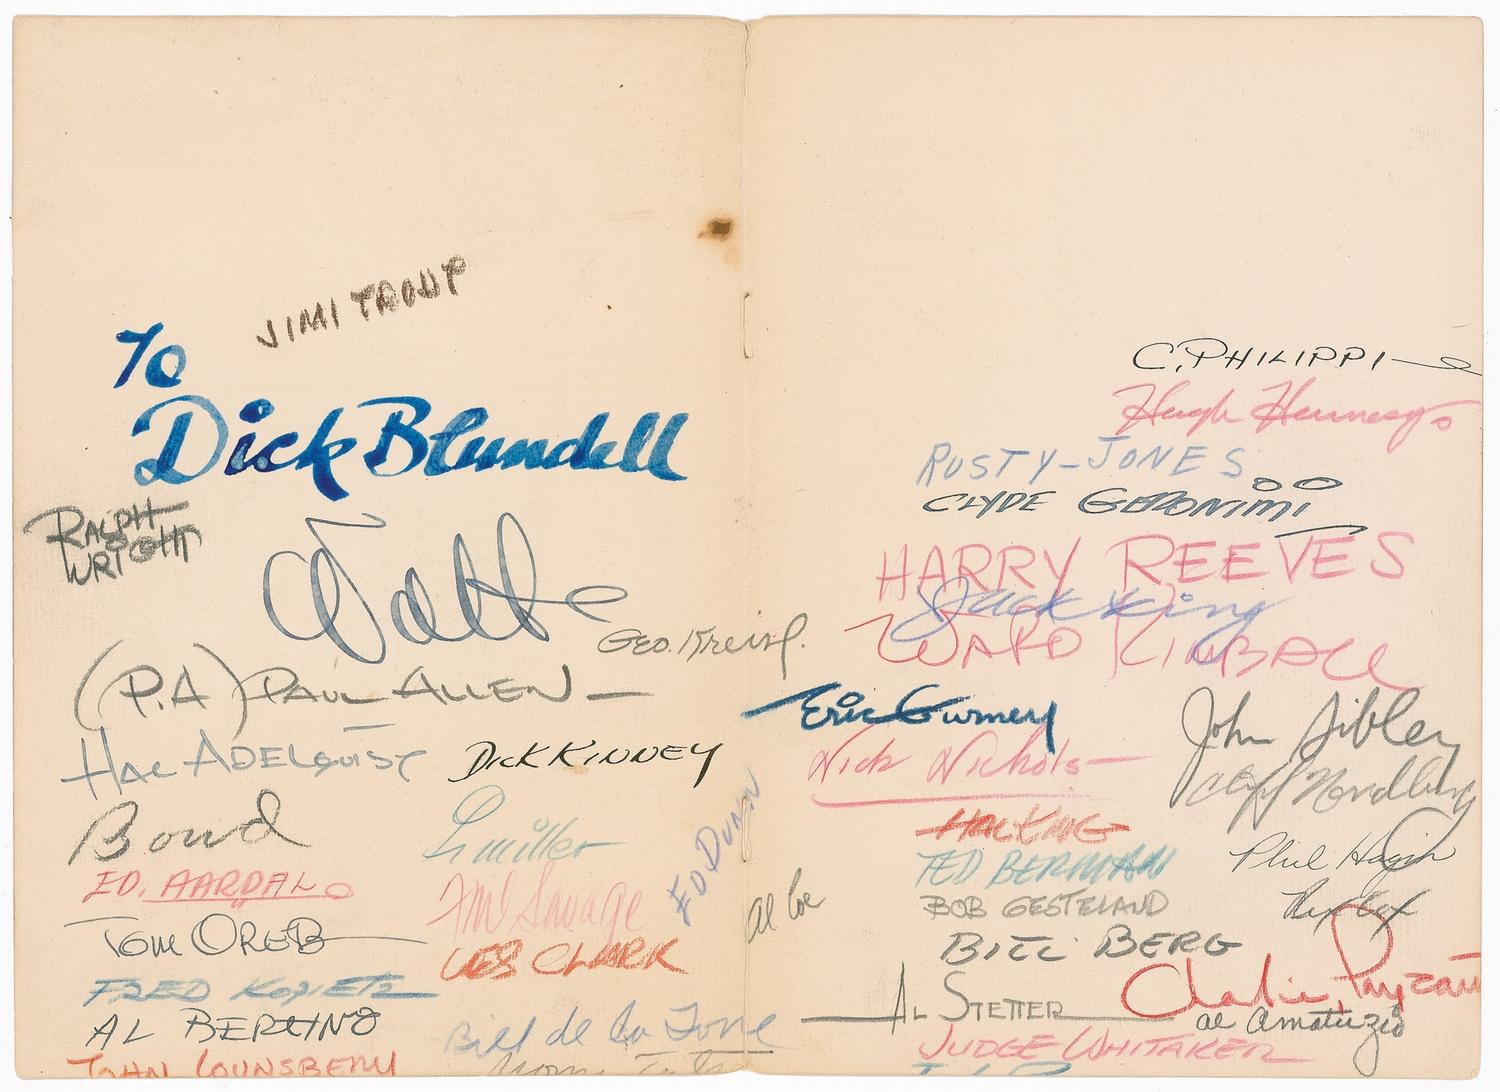 JIMI TROUT
To
Dick Blundell
RALPH
WRIGHT
Walt
GEO. Kreisl.
(P.A) PAUL ALLEN
HAL ADELQUIST
DICK KINNEY
Bowd
Miller
ED DUNN
ED. AARDAL
Savage
al Coe
TOM OREB
LES CLARK
FRED KOPIETZ
AL BERTINO
Bill de la Torre
JOHN LOUNSBERY
C. PHILIPPI
Hugh Hennesy
RUSTY-JONES
CLYDE GERONIMI
HARRY REEVES
Jack King
WARD KIMBALL
Eric Gurney
John Sibley
Nick Nichols
Cliff Nordberg
HAL KING
TED BERMAN
Phil
BOB GESTELAND
Rex Cox
BILL BERG
Charlie Payzant
AL STETTER
al Amatuzio
JUDGE WHITAKER